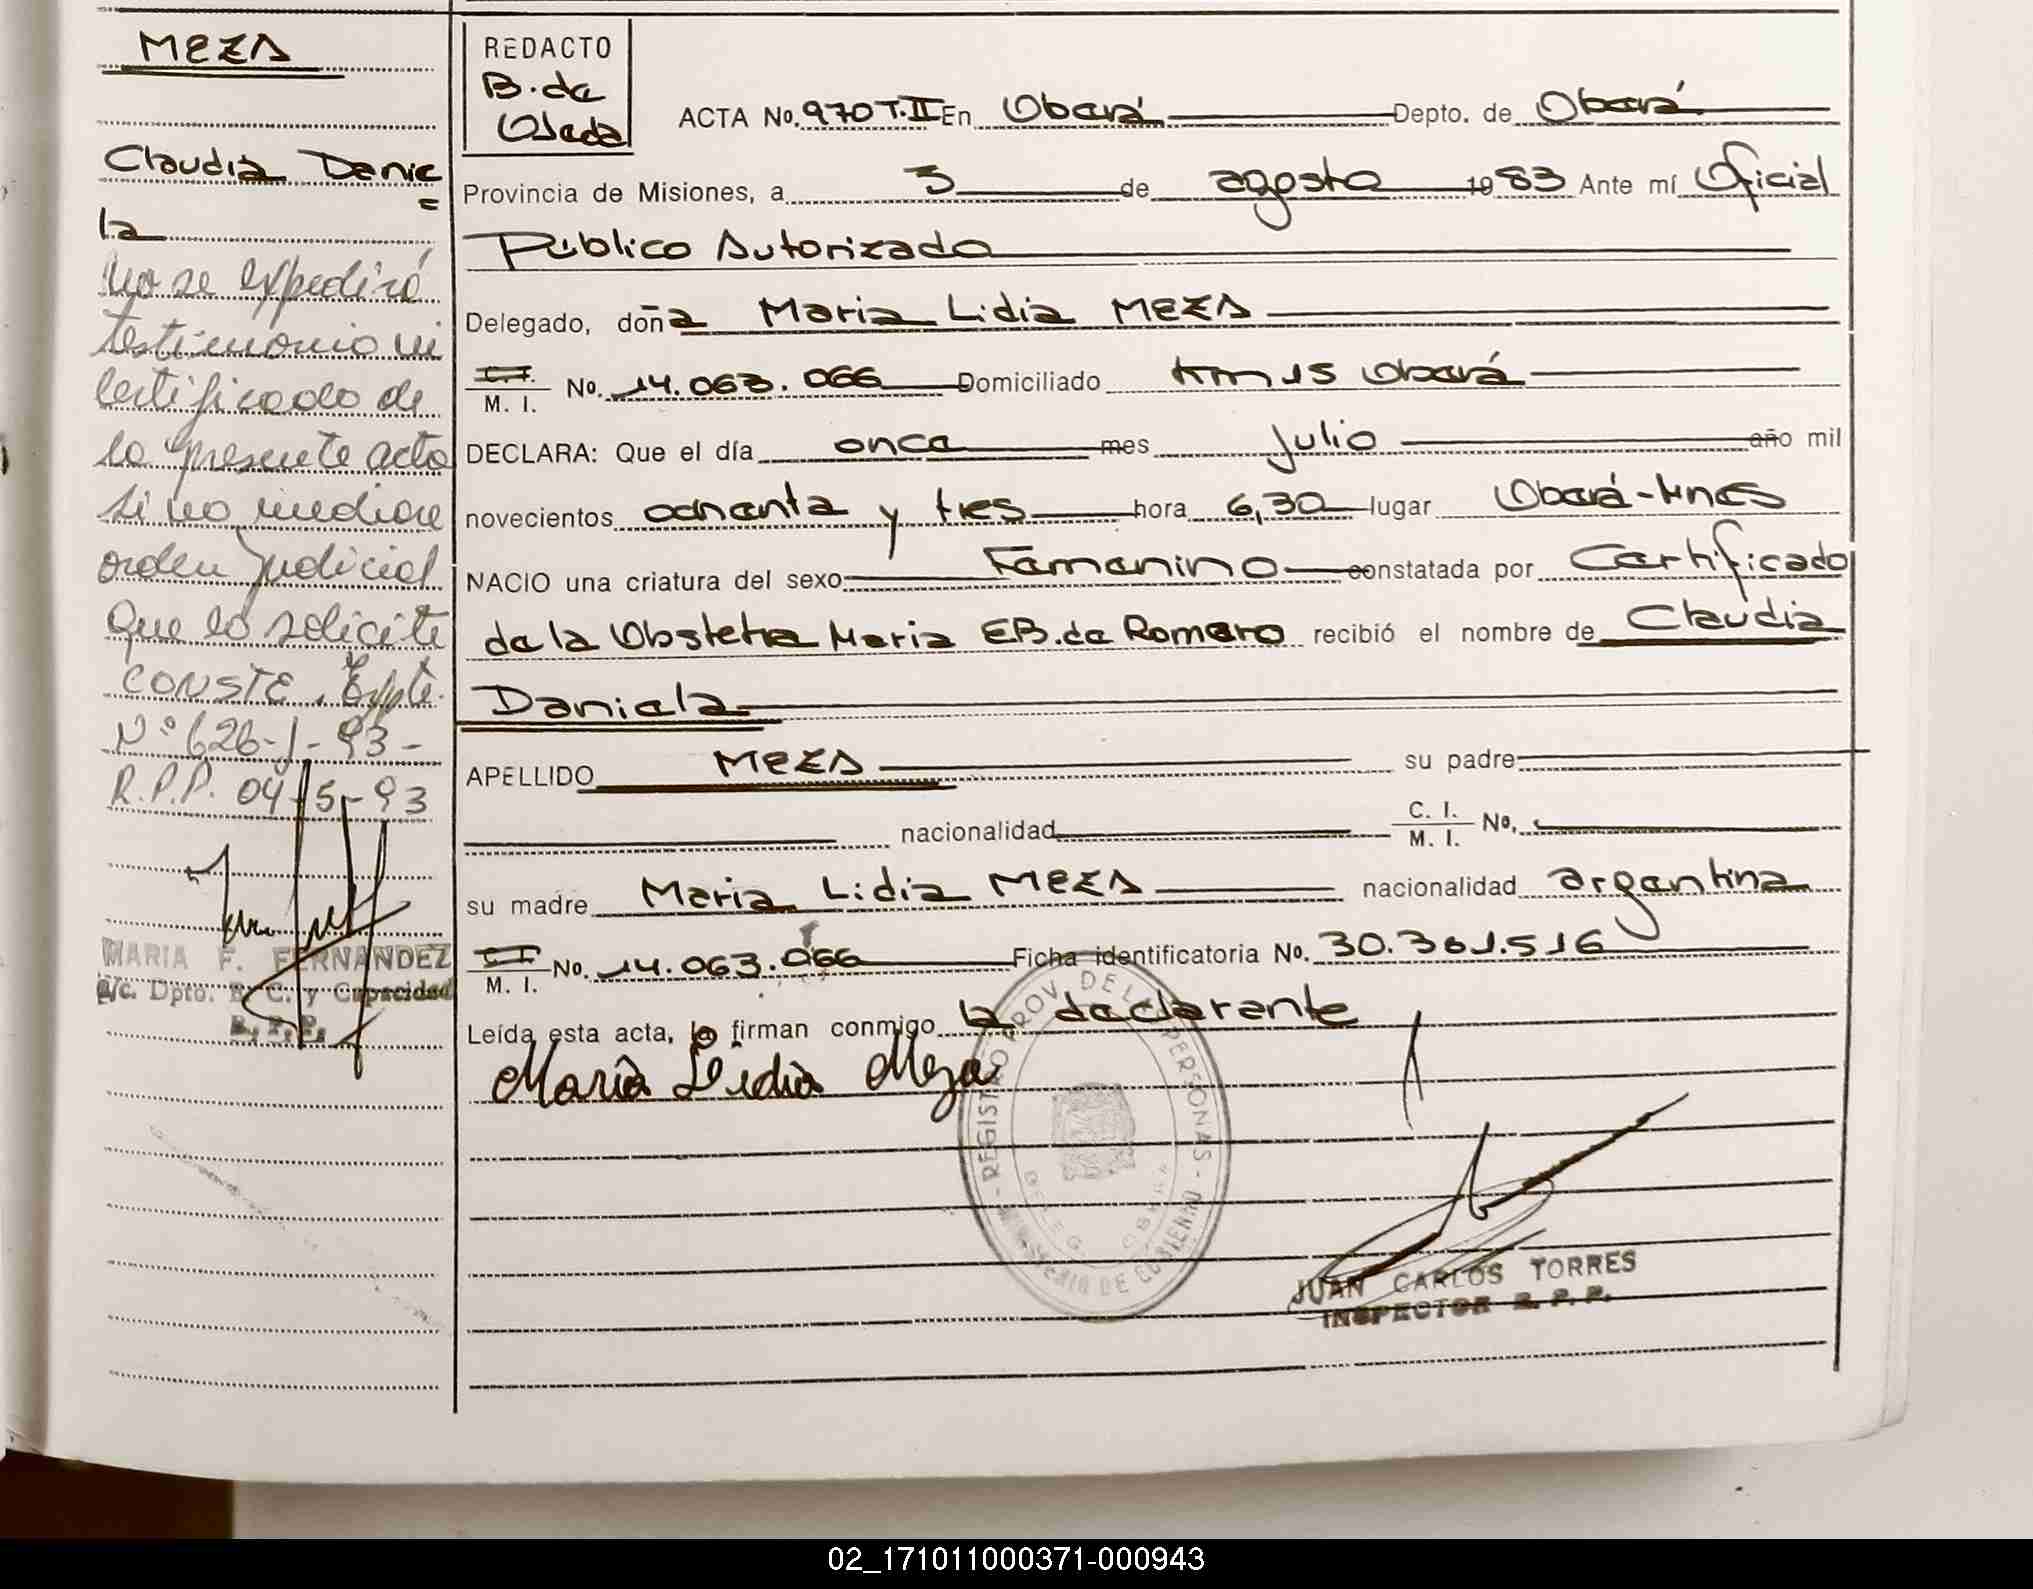 MEZA
Claudia Danie
=
la
No se expedirá
testimonio ni
certificado de
la presente acta
si no mediare
orden judicial
que lo solicite
CONSTE. Expte.
Nº 626-J-93-
R.P.P. 04-5-93
MARIA F. FERNANDEZ
a/c. Dpto. E. C. y Capacidad
R. P. P.
REDACTO
B. de
Ojeda
ACTA No. 970 T.II En Oberá Depto. de Oberá
Provincia de Misiones, a 3 de agosto 1983 Ante mí Oficial
Público Autorizado
Delegado, doña Maria Lidia MEZA
C. I.
M. I. No. 14.063.066 Domiciliado Km 15 Oberá
DECLARA: Que el día once mes julio año mil
novecientos ochenta y tres hora 6,30 lugar Oberá-Mnes
NACIO una criatura del sexo Femenino constatada por Certificado
de la Obstetra Maria E B. de Romero recibió el nombre de Claudia
Daniela
APELLIDO MEZA su padre
nacionalidad C. I.
M. I. No.
su madre Maria Lidia MEZA nacionalidad argentina
C. I.
M. I. No. 14.063.066 Ficha identificatoria No. 30.361.516
Leída esta acta, la firman conmigo la declarante
María Lidia Meza
REGISTRO PROV. DE LAS PERSONAS - MINISTERIO DE GOBIERNO -
DELEG. OBERA
JUAN CARLOS TORRES
INSPECTOR R. P. P.
02_171011000371-000943